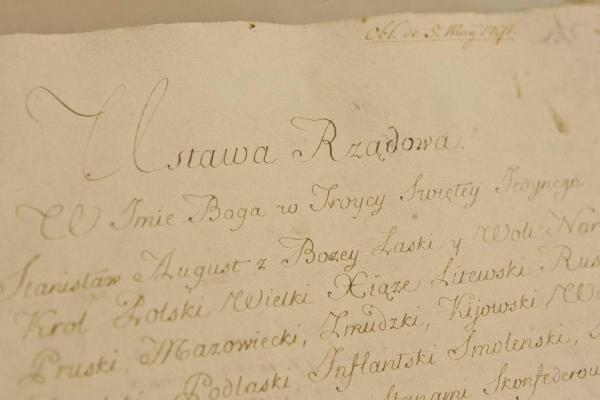 Obl. de 5. Maÿ 1791.
Ustawa Rządowa.
W Imie Boga w Troycy Swiętey Jedynego.
Stanisław August z Bozey Łaski y Woli Nar
Krol Polski Wielki Xiąze Litewski Rus
Pruski, Mazowiecki, Zmudzki, Kijowski Wo
Podlaski, Inflantski Smoleński,
Stanami Skonfederow